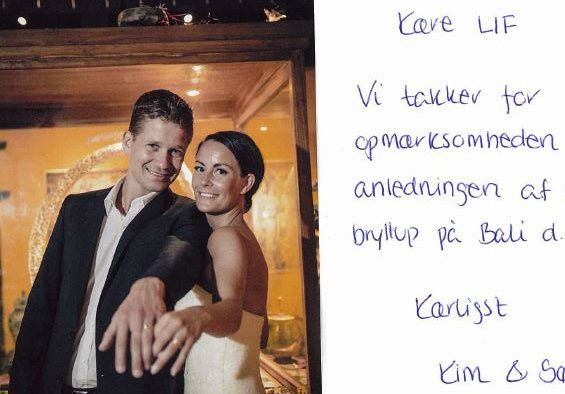 Kære LIF
Vi takker for
opmærksomheden
anledningen af
bryllup på Bali d.
Kærligst
Kim &